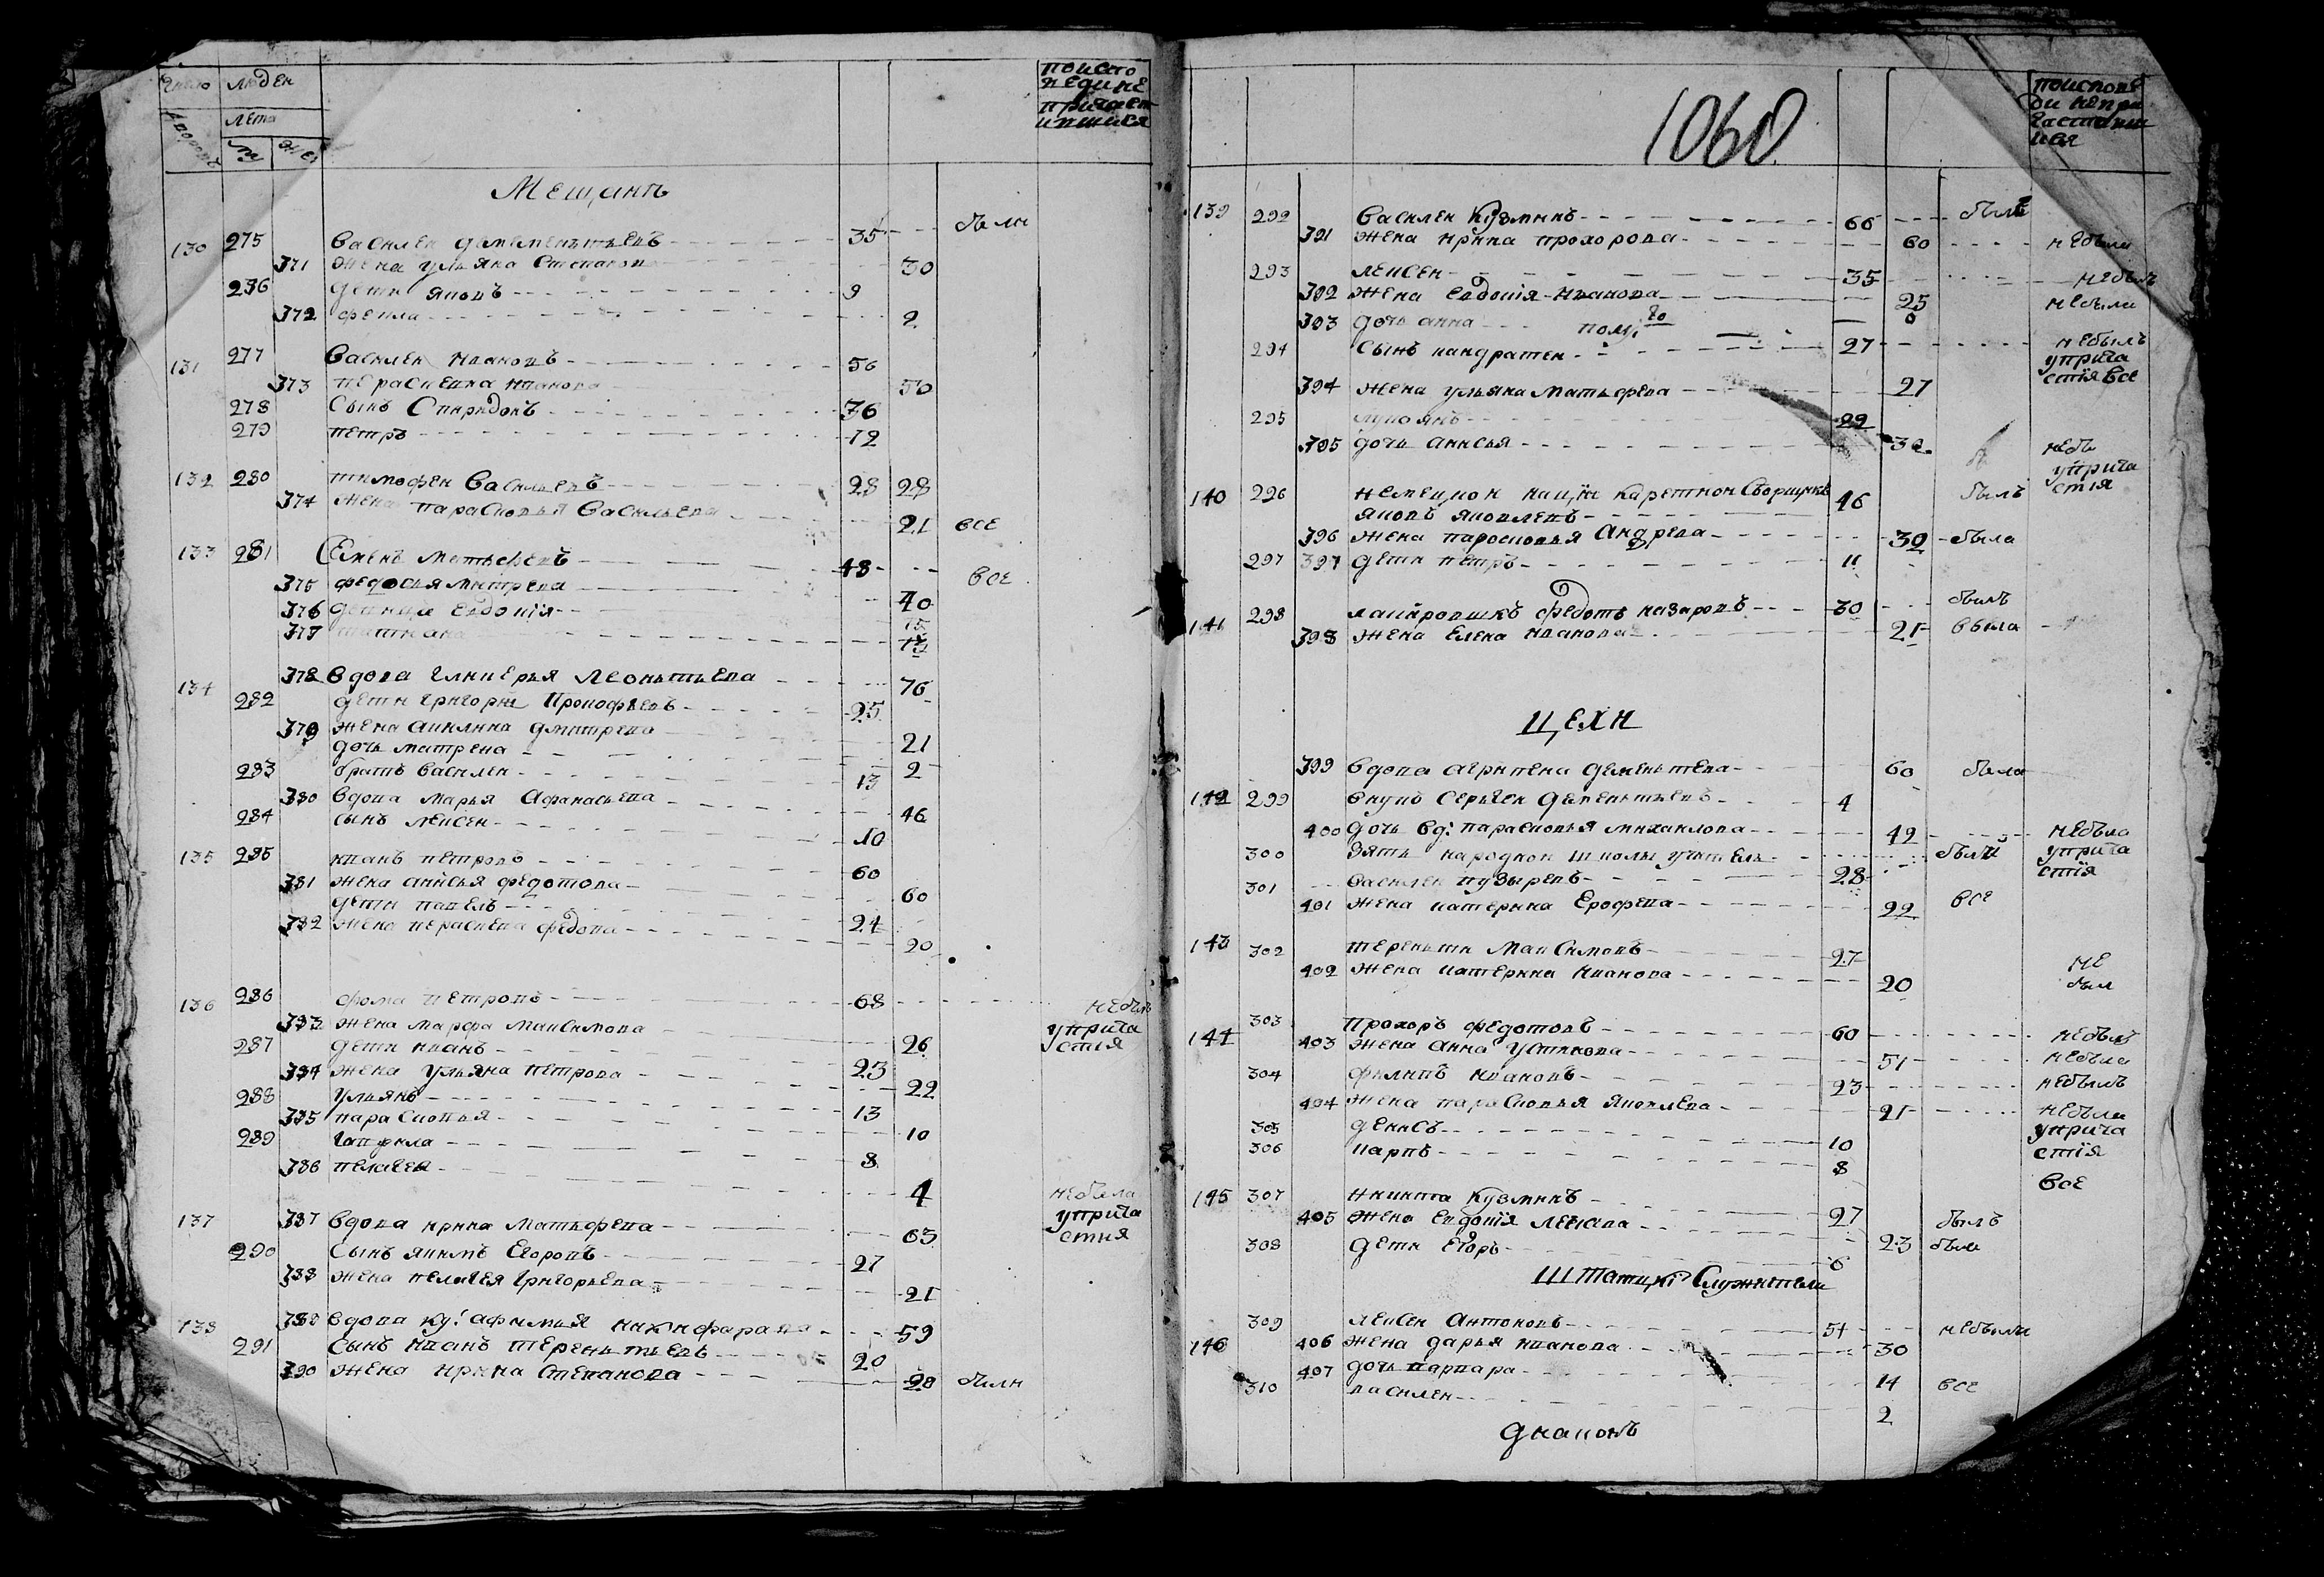 Число людей
дворовъ лета
му же
поиспо
ведине
причаст
ившися
Мещанъ
130 275 Василей Дементьевъ 35 были
371 жена ульяна Степанова 30
276 дети яковъ 9
372 фекла 2
131 277 Василей ивановъ 56
373 параскевка иванова 50
278 Сынъ Спиридонъ 36
279 петръ 12
132 280 тимофей Васильевъ 28 28
374 жена парасковья Васильева 21 все
133 281 Семенъ матвеевъ 48
375 федосья митрева 40 все
376 девица евдокiя 15
377 татиана 13
134 378 вдова гликерья леонтьева 76
282 дети григорiй Прокофьевъ 25
379 жена акилина дмитрева 21
дочь матрена 2
283 братъ василей 13
380 вдова марья Афанасьева 46
284 сынъ лексей 10
135 285 иванъ петровъ 60
381 жена анисья федотова 60
дети павелъ 24
382 жена параскева федова 20
136 286 фома петровъ 68 небылъ
383 жена марфа максимова 26 уприча
287 дети иванъ 23 стия
384 жена ульяна петрова 22
288 ульянъ 13
385 парасковья 10
289 гаврила 8
386 пелагея 4 небыла
137 387 вдова ирина матвфева 63 уприча
290 Сынъ якимъ Егоровъ 27 стия
388 жена пелагея григорьева 21
138 389 вдова ку: афимья никифарава 59
291 сынъ иванъ терентьевъ 20
390 жена ирина степанова 20 были
1060
поисповѣ
ди непри
частивш
ися
139 292 Василей Кузминъ 66 былъ
391 жена ирина прохорова 60 небыла
293 лексей 35 небылъ
392 жена евдокiя иванова 25 небыла
393 дочь анна полу: го 0
294 сынъ кандратей 27 небылъ
уприча
394 жена ульяна матьфева 27 стiя все
295 лукоянъ 22
395 дочь анисья 30 небы
уприча
стiя
140 296 немецкои нацiи каретнои сборщикъ 46 былъ
яковъ яковлевъ
396 жена паросковья Андрева 30 была
297 397 дети петръ 11
141 298 лакировшикъ федотъ назаровъ 30 былъ
398 жена елена иванова 21 была
Цехи
399 вдова агрипена дементева 60 была
142 299 внукъ сергей дементьевъ 4
400 дочь вд: парасковья михаилова 42 небыла
300 зять народнои школы учитель были уприча
301 василей пузыревъ 28 стiя
401 жена катерина Ерофева 22 все
143 302 терентий Максимовъ 27 не
402 жена катерина иванова 20 был
144 303 Прохоръ федотовъ 60 небылъ
403 жена анна устинова 51 небыла
304 филипъ ивановъ 23 небылъ
404 жена парасковья яковлева 21 небыла
305 денисъ 10 уприча
306 карпъ 8 стiя
все
145 307 никита Кузминъ 27 былъ
405 жена евдокiя 23 была
308 дети Егоръ 6
Штатцкi Служители
146 309 лексей Антоновъ 54 небыли
406 жена дарья иванова 30
407 дочь варвара 14 все
310 василей 2
диаконъ